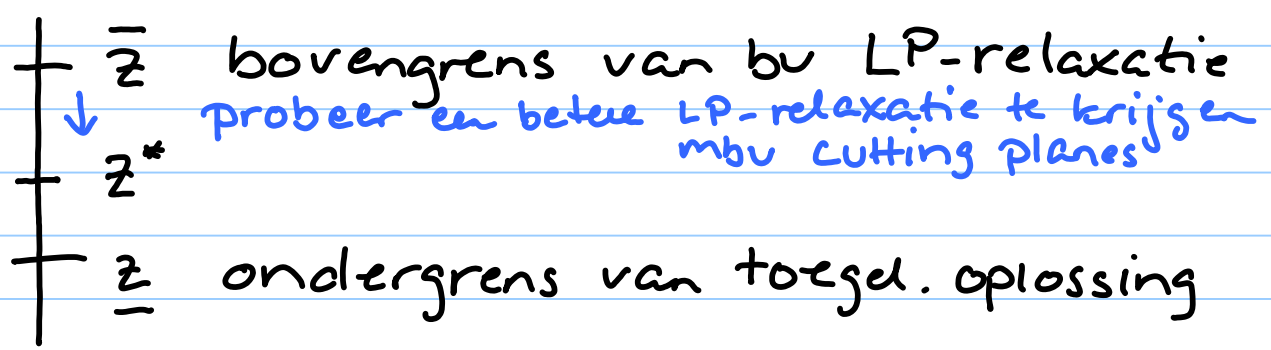 z̅ bovengrens van bv LP-relaxatie
↓ probeer een betere LP-relaxatie te krijgen
mbv cutting planes
z*
z̲ ondergrens van toegel. oplossing